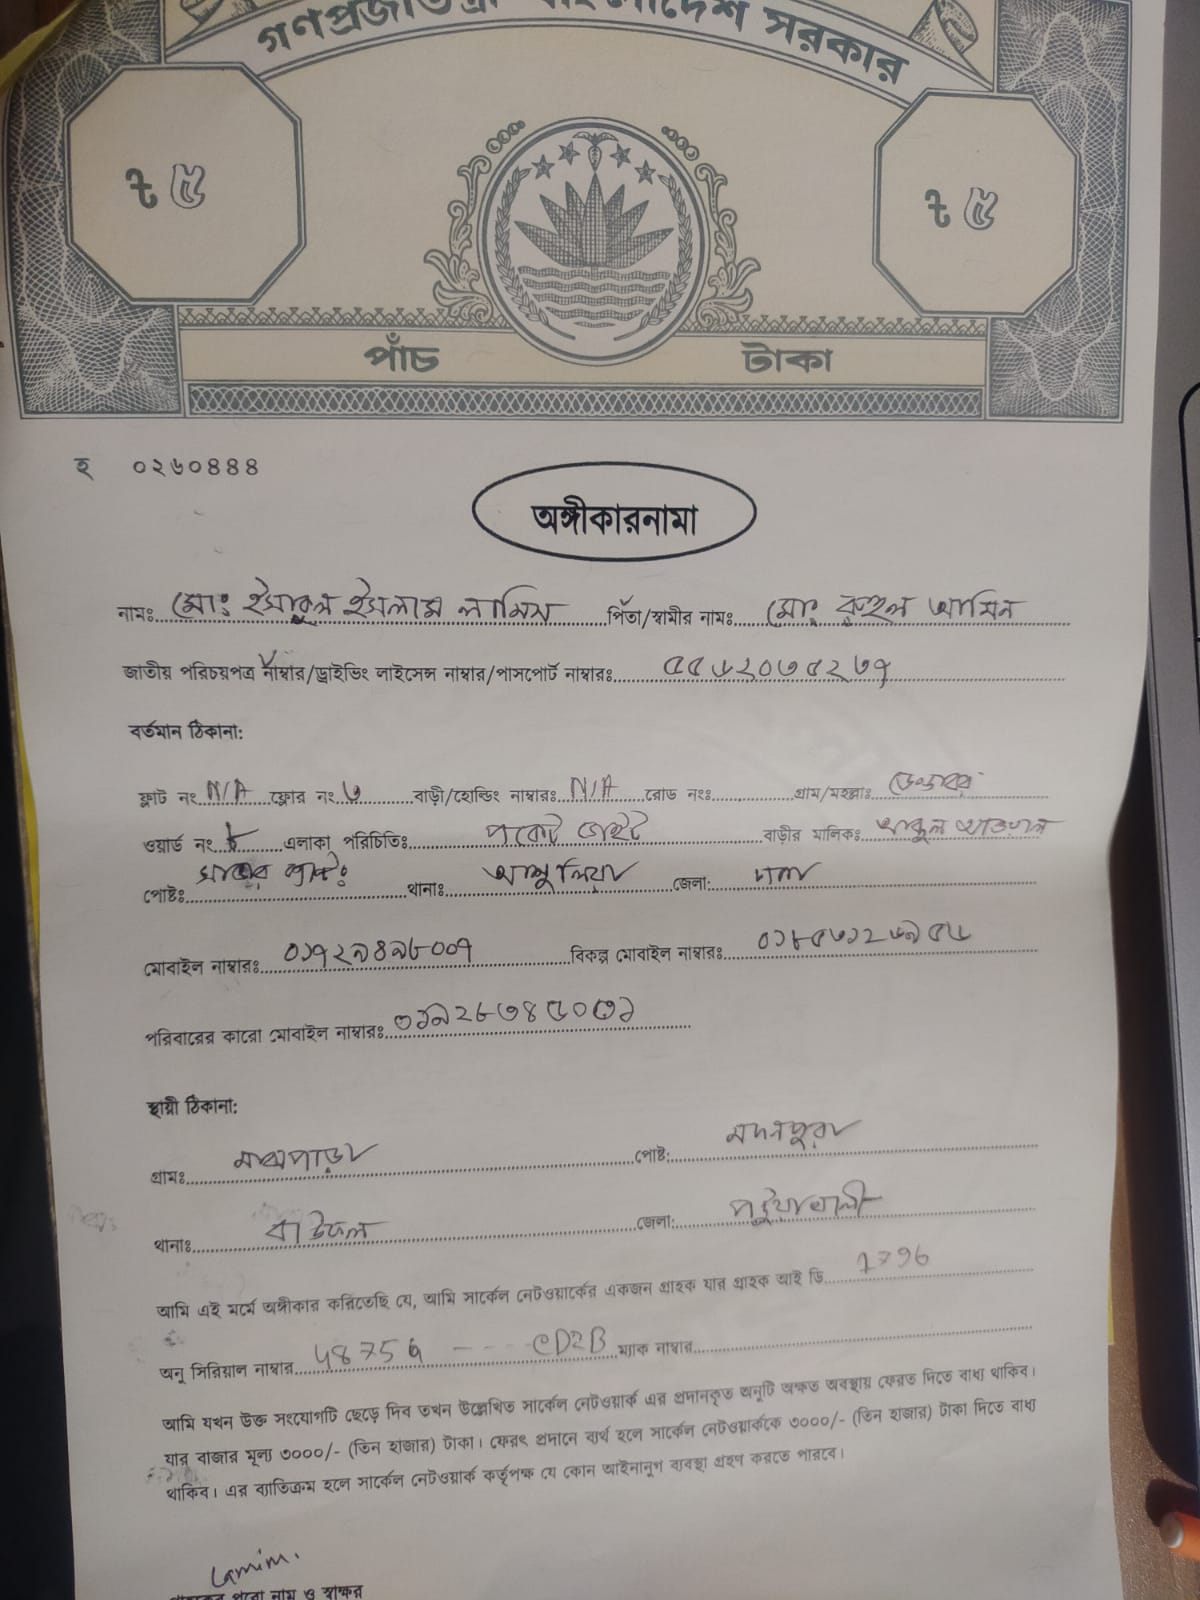 গণপ্রজাতন্ত্রী বাংলাদেশ সরকার
৳ ৫ ৳ ৫
পাঁচ টাকা
হ ০২৬০৪৪৪
অঙ্গীকারনামা
নামঃ মোঃ ইসলাম লামিম পিতা/স্বামীর নামঃ মোঃ রুহুল আমিন
জাতীয় পরিচয়পত্র নাম্বার/ড্রাইভিং লাইসেন্স নাম্বার/পাসপোর্ট নাম্বারঃ ৫৫৬২০৩৫২৩৭
বর্তমান ঠিকানা:
ফ্লাট নং N/A ফ্লোর নং ৩ বাড়ী/হোল্ডিং নাম্বারঃ N/A রোড নংঃ গ্রাম/মহল্লাঃ
ওয়ার্ড নং ৮ এলাকা পরিচিতিঃ পকেট গেইট বাড়ীর মালিকঃ
পোষ্টঃ থানাঃ আশুলিয়া জেলা: ঢাকা
মোবাইল নাম্বারঃ ০১৭২৯৪৯৮০০৭ বিকল্প মোবাইল নাম্বারঃ
পরিবারের কারো মোবাইল নাম্বারঃ
স্থায়ী ঠিকানা:
গ্রামঃ মাঝপাড়া পোষ্ট: মদনপুরা
থানাঃ বাউফল জেলা: পটুয়াখালী
আমি এই মর্মে অঙ্গীকার করিতেছি যে, আমি সার্কেল নেটওয়ার্কের একজন গ্রাহক যার গ্রাহক আই ডি 1796
অনু সিরিয়াল নাম্বার ---- CD2B ম্যাক নাম্বার
আমি যখন উক্ত সংযোগটি ছেড়ে দিব তখন উল্লেখিত সার্কেল নেটওয়ার্ক এর প্রদানকৃত অনুটি অক্ষত অবস্থায় ফেরত দিতে বাধ্য থাকিব।
যার বাজার মূল্য ৩০০০/- (তিন হাজার) টাকা। ফেরৎ প্রদানে ব্যর্থ হলে সার্কেল নেটওয়ার্ককে ৩০০০/- (তিন হাজার) টাকা দিতে বাধ্য
থাকিব। এর ব্যতিক্রম হলে সার্কেল নেটওয়ার্ক কর্তৃপক্ষ যে কোন আইনানুগ ব্যবস্থা গ্রহণ করতে পারবে।
Lamim.
পুরো নাম ও স্বাক্ষর